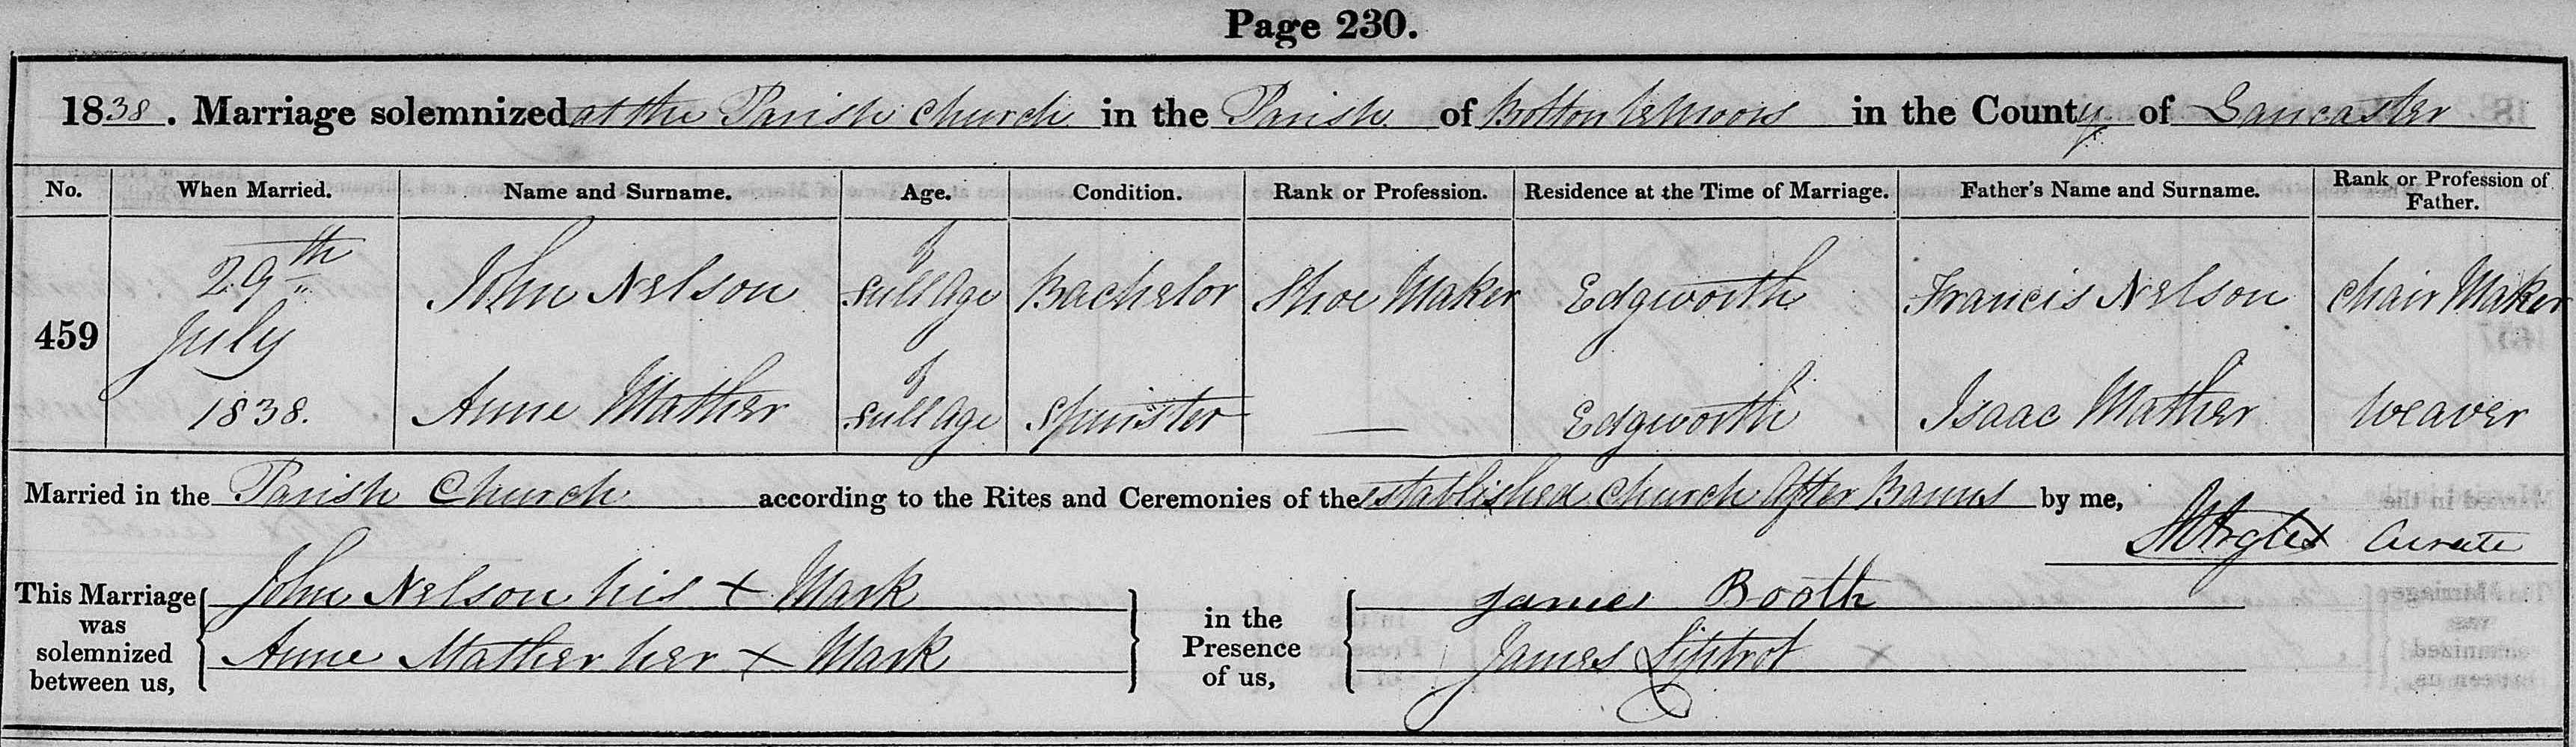 Page 230.
1838. Marriage solemnized at the Parish Church in the Parish of Bolton le Moors in the County of Lancaster
No. When Married. Name and Surname. Age. Condition. Rank or Profession. Residence at the Time of Marriage. Father's Name and Surname. Rank or Profession of Father.
459 29th July 1838.
John Nelson of full Age Bachelor Shoe Maker Edgworth Francis Nelson Chair Maker
Anne Mather of full Age Spinster — Edgworth Isaac Mather Weaver
Married in the Parish Church according to the Rites and Ceremonies of the established Church After Banns by me,
Curate
This Marriage was solemnized between us, John Nelson his x Mark
Anne Mather her x Mark
in the Presence of us, James Booth
James Liptrot